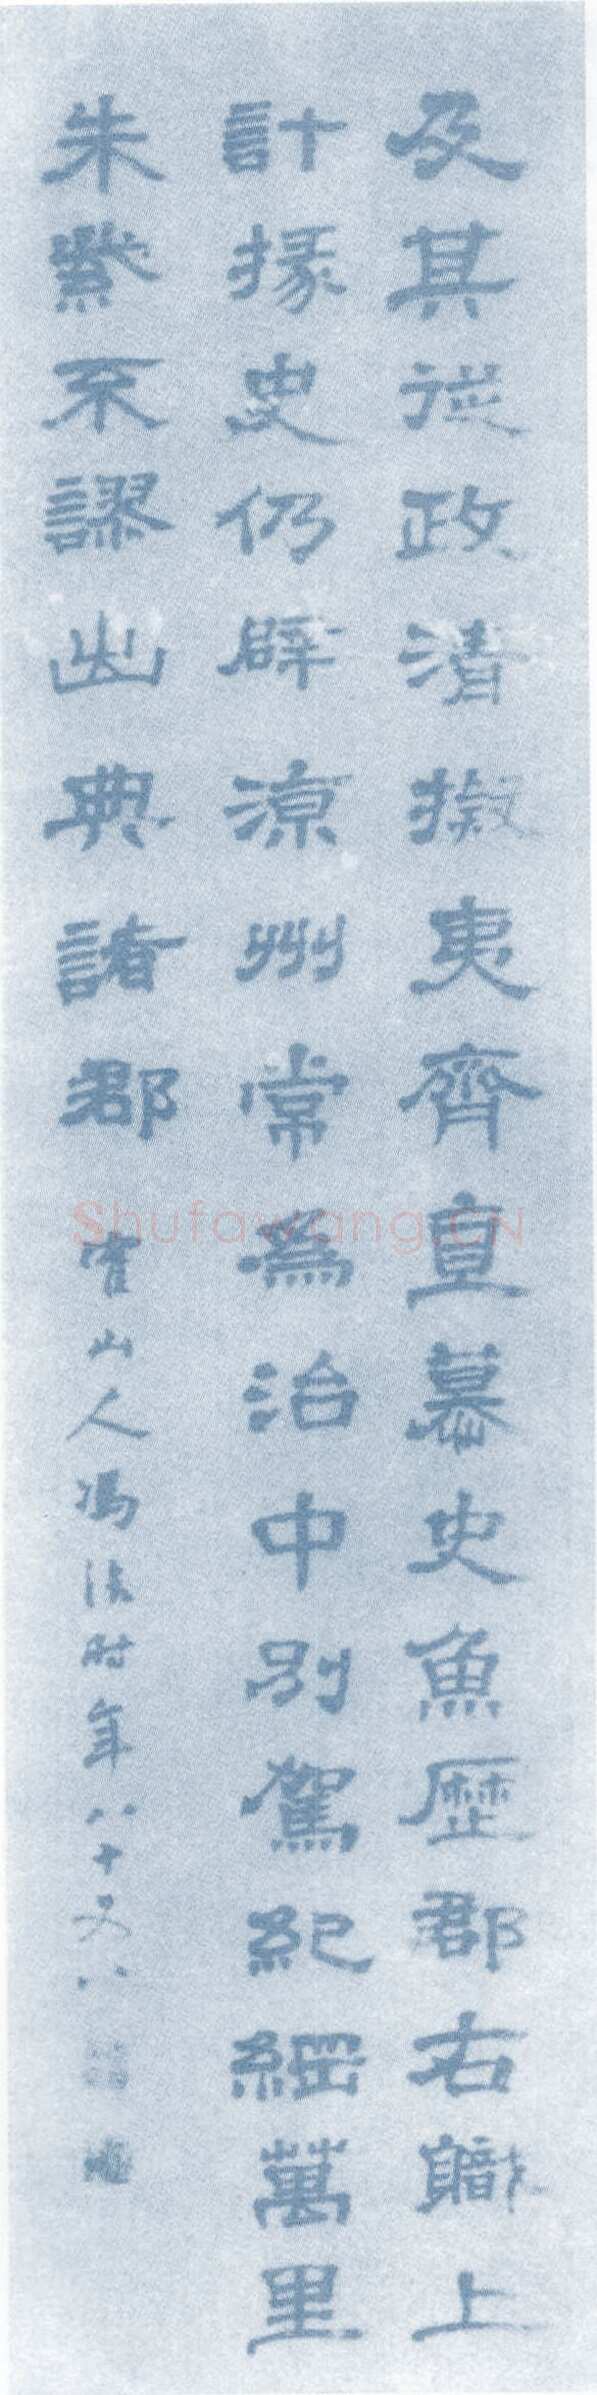 及其從政清擬夷齊直慕史魚歷郡右職上
計掾史仍辟涼州常為治中別駕紀綱萬里
朱紫不謬出典諸郡
霍山人冯时年八十又八
Shufawang.CN